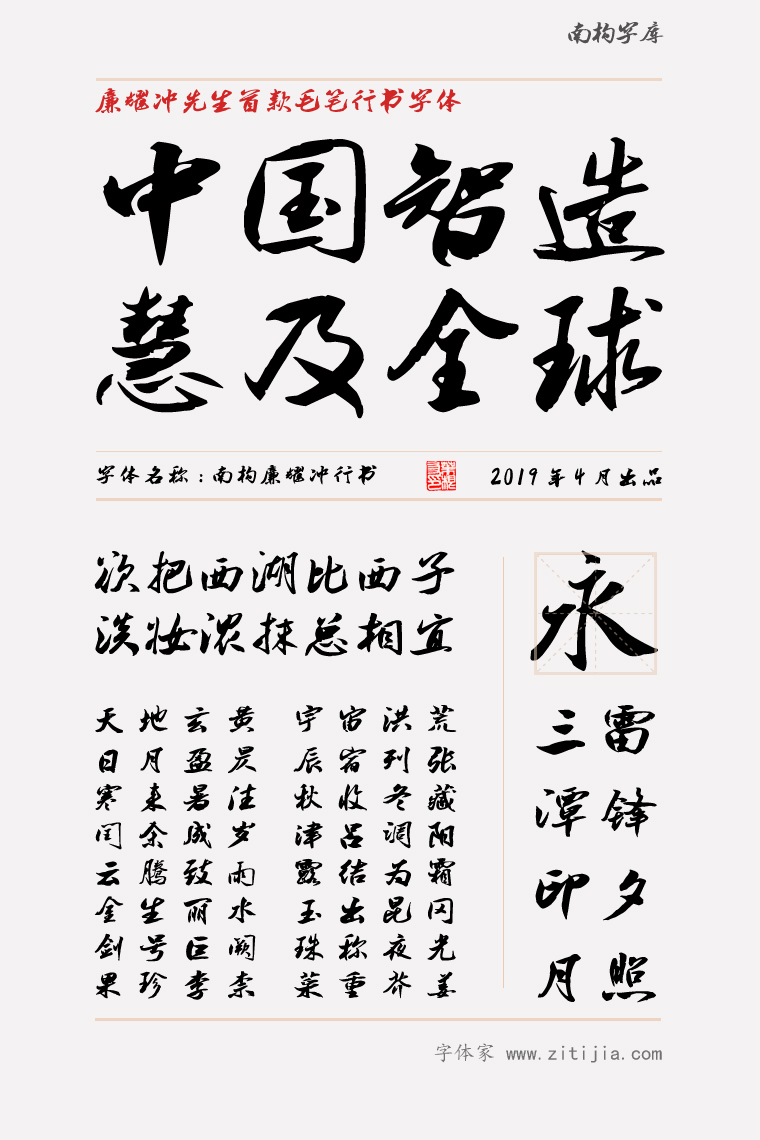 南构字库
廉耀冲先生首款毛笔行书字体
中国智造
慧及全球
字体名称：南构廉耀冲行书
2019年4月出品
欲把西湖比西子
淡妆浓抹总相宜
天地玄黄 宇宙洪荒
日月盈昃 辰宿列张
寒来暑往 秋收冬藏
闰余成岁 律吕调阳
云腾致雨 露结为霜
金生丽水 玉出昆冈
剑号巨阙 珠称夜光
果珍李柰 菜重芥姜
永
三潭印月
雷锋夕照
字体家 www.zitijia.com